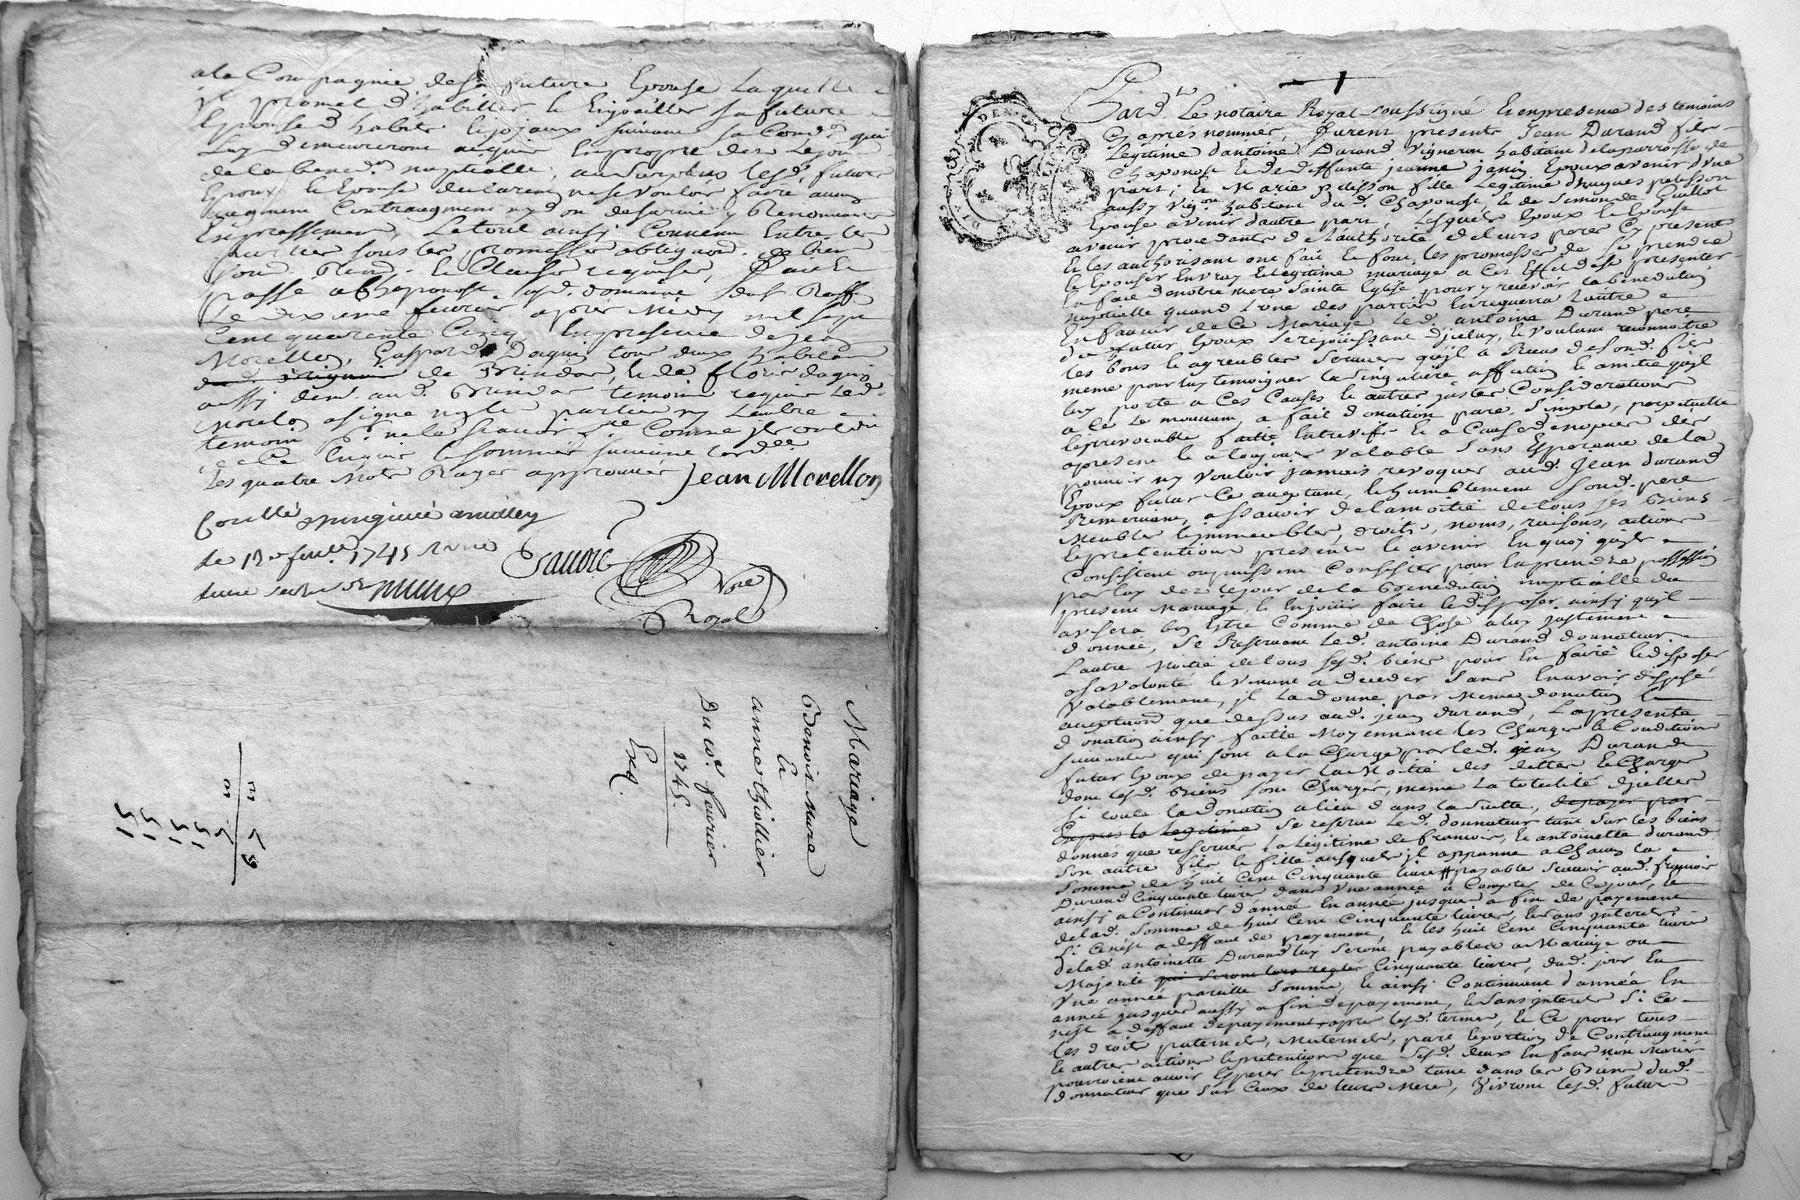 a la Compagnie de sa future Epouse Laquelle
promet d'habiller et Enjoailler sa future
Epouse d'habits et joyaux suivant sa Cond.on qui
Luy demeureront acquis En propre des Le jour
de la bened.on nuptialle, au surplus lesd. futurs
Epoux et Epouse declarent ne se vouloir faire aucun
augment Contraugment ny don de survie y Renonceant
Expressement, Le tout ainsi Convenu Entre les
parties sous les promesses obligaon. de bien
Renon. et Clauses requises, fait et
passé a Chaponost
Le dixieme fevrier apres Midy mil sept
Cent quarante Cinq En presence de jean
Morellon, Gaspard Daquin tous deux habitans
de Brindas, et de fleury daquin
aussy dem. aud. Brindas temoins requis Led.
Morellon a signé non les parties ny L'autre
temoin p. ne le scavoir Comme ils ont dit
de ce Enquis et sommés suivant l'ord.ce
Les quatre mots Rayes approuvés Jean Morellon
Controllé
le 12e fevr. 1745
Royal
Mariage
Benoist More
Et
anne thiollier
Du 10e. fevrier
1745
Exp.
Pard.t Le notaire Royal soussigné Et en presence des temoins
Cy apres nommes, furent presents Jean Durand fils
Legitime d'antoine Durand Vigneron habitant de la parroisse de
Chaponost et de deffunte jeanne janin Epoux avenir d'une
part; et Marie pilesson fille Legitime d'hugues pilesson
aussy Vig.on habitant du d. Chaponost, et de Simonde Guillot
Epouse avenir d'autre part, Lesquels Epoux Et Epouse
avenir procedants de L'authorité de leurs peres Cy presents
Et les authorisant ont fait Et font les promesses de se prendre
et Epouser En vray Et legitime mariage a Cet Effet de se presenter
En face de notre mere Sainte Eglise pour y recevoir la benediction
nuptialle quand L'une des parties En requerra L'autre
En faveur de Ce Mariage Led. antoine Durand pere
du futur Epoux se rejouissant d'jceluy, Et voulant reconnoitre
les bons et agreables services qu'jl a Reçus de sond. fils
meme pour luy temoigner la singuliere affection et amitié qu'jl
luy porte a Ces Causes et autres justes Considerations
a Ce Le mouvant a fait donation pure, simple, perpetuelle
Et irrevocable faitte Entre vifs Et a Cause de noces des
apresent Et a toujours valable sans Esperance de la
pouvoir ny vouloir jamais revoquer aud. Jean durand
Epoux futur Ce acceptant, et humblement sond. pere
Remerciant, assavoir de la moitié de tous ses biens
Meubles et immeubles, droits, noms, raisons, actions
et pretentions presents et avenir En quoy qu'jls
Consistent ou puissent Consister pour En prendre possession
par luy des le jour de la benediction nuptialle du
present Mariage, et En jouir faire et disposer ainsy qu'jl
avisera bon Estre Comme de Chose a luy justement
donnée, se Reservant Led. antoine Durand donnateur
L'autre Moitié de tous sesd. biens pour En faire et disposer
a sa volonté Et venant a deceder sans En avoir disposé
Valablement, jl La donne par Meme donation Et
acceptaon que dessus aud. jean durand, La presente
donation ainsy faitte Moyennant les Charges et Conditions
suivantes qui sont a la Charge par led. jean Durand
futur Epoux de payer La Moitié des dettes et Charges
dont lesd. biens sont Charges, meme La totalité d'jcelles
si toute La donation a lieu dans La suitte, de payer par
Expres la Legitime se reserve Led. donnateur tant sur les biens
donnés que reservés La legitime de francois, et antoinette durand
son autre fils et fille ausquels jl appanne a Chacun la
somme de huit Cent Cinquante livres payable scavoir aud. francois
Durand Cinquante livres dans Une année a Compter de Cejour, Et
ainsy a Continuer d'année En année jusques a fin de payement
de lad. somme de huit Cent Cinquante livres, Et sans jnterets
si Cen'est a deffaut de payement, et les huit Cent Cinquante livres
de lad. antoinette Durand luy seront payables a Mariage ou
Majorité qui seront lors regles Cinquante livres, dud. jour En
Une année pareille somme, et ainsy Continuant d'année En
année jusques aussy a fin de payement, et sans interets si Ce
nest a deffaut de payement apres lesd. termes, et Ce pour tous
les droits paternels, Maternels, part Et portion de Contraugment
Et autres actions et pretentions que sesd. deux Enfans non Mariés
pourroient avoir Esperer et pretendre tant dans les Biens dud.
donnateur que sur Ceux de leurs Mere, Vivront lesd. futurs